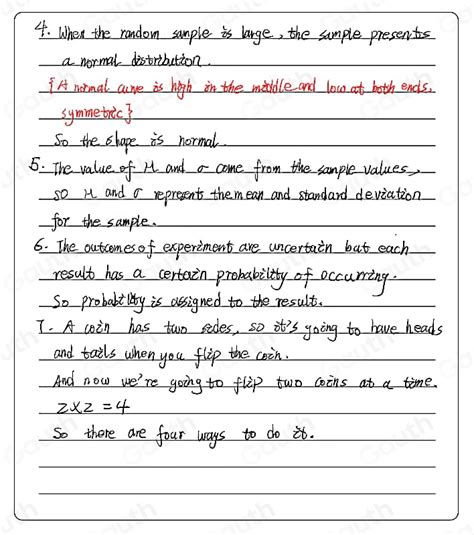 4. When the random sample is large, the sample presents
a normal distribution.
{A normal curve is high in the middle and low at both ends,
symmetric}
So the shape is normal.
5. The value of M and σ come from the sample values,
so M and σ represent the mean and standard deviation
for the sample.
6. The outcomes of experiment are uncertain but each
result has a certain probability of occurring.
So probability is assigned to the result.
7. A coin has two sides, so it's going to have heads
and tails when you flip the coin.
And now we're going to flip two coins at a time.
2×2=4
So there are four ways to do it.